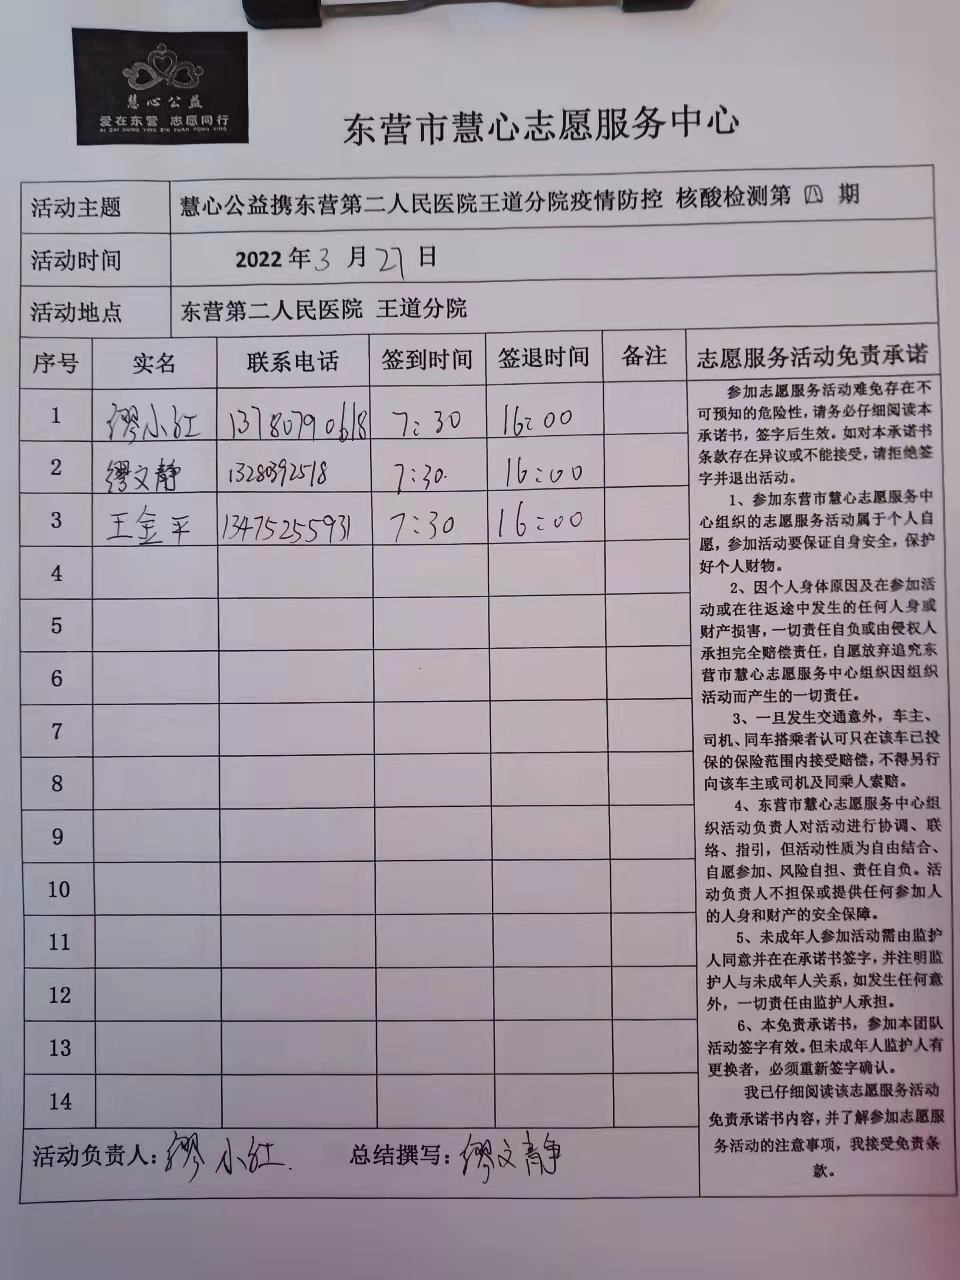 慧心公益
爱在东营 志愿同行
AI ZAI DONG YING ZHI YUAN TONG XING
东营市慧心志愿服务中心
活动主题 慧心公益携东营第二人民医院王道分院疫情防控 核酸检测第 四 期
活动时间 2022年3月27日
活动地点 东营第二人民医院 王道分院
序号 实名 联系电话 签到时间 签退时间 备注
1 缪小红 13780790618 7:30 16:00
2 缪文静 13280392518 7:30 16:00
3 王金平 13475255931 7:30 16:00
4
5
6
7
8
9
10
11
12
13
14
活动负责人:缪小红. 总结撰写:缪文静
志愿服务活动免责承诺
参加志愿服务活动难免存在不
可预知的危险性,请务必仔细阅读本
承诺书,签字后生效。如对本承诺书
条款存在异议或不能接受,请拒绝签
字并退出活动。
1、参加东营市慧心志愿服务中
心组织的志愿服务活动属于个人自
愿,参加活动要保证自身安全,保护
好个人财物。
2、因个人身体原因及在参加活
动或在往返途中发生的任何人身或
财产损害,一切责任自负或由侵权人
承担完全赔偿责任,自愿放弃追究东
营市慧心志愿服务中心组织因组织
活动而产生的一切责任。
3、一旦发生交通意外,车主、
司机、同车搭乘者认可只在该车已投
保的保险范围内接受赔偿,不得另行
向该车主或司机及同乘人索赔。
4、东营市慧心志愿服务中心组
织活动负责人对活动进行协调、联
络、指引,但活动性质为自由结合、
自愿参加、风险自担、责任自负。活
动负责人不担保或提供任何参加人
的人身和财产的安全保障。
5、未成年人参加活动需由监护
人同意并在在承诺书签字,并注明监
护人与未成年人关系,如发生任何意
外,一切责任由监护人承担。
6、本免责承诺书,参加本团队
活动签字有效。但未成年人监护人有
更换者,必须重新签字确认。
我已仔细阅读该志愿服务活动
免责承诺书内容,并了解参加志愿服
务活动的注意事项,我接受免责条
款。